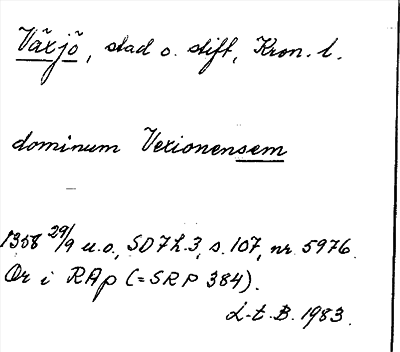 Växjö, stad o. stift, Kron. l.
dominum Vexionensem
1358 29/9 u.o., SD 7 h. 3, s. 107, nr 5976.
Or i RAp (=SRP 384).
L-t. B. 1983.